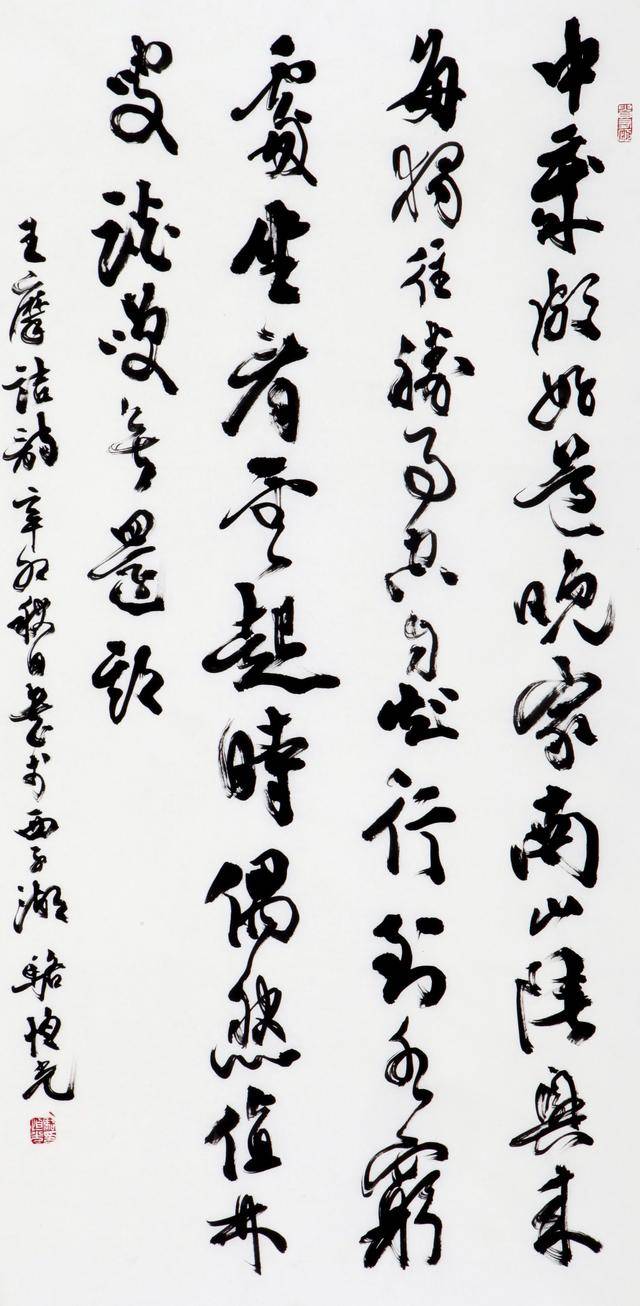 中歲頗好道晚家南山陲興來
每獨往勝事空自知行到水窮
處坐看雲起時偶然值林
叟談笑無還期
王摩詰韵辛卯秋日書於西子湖駱恒光